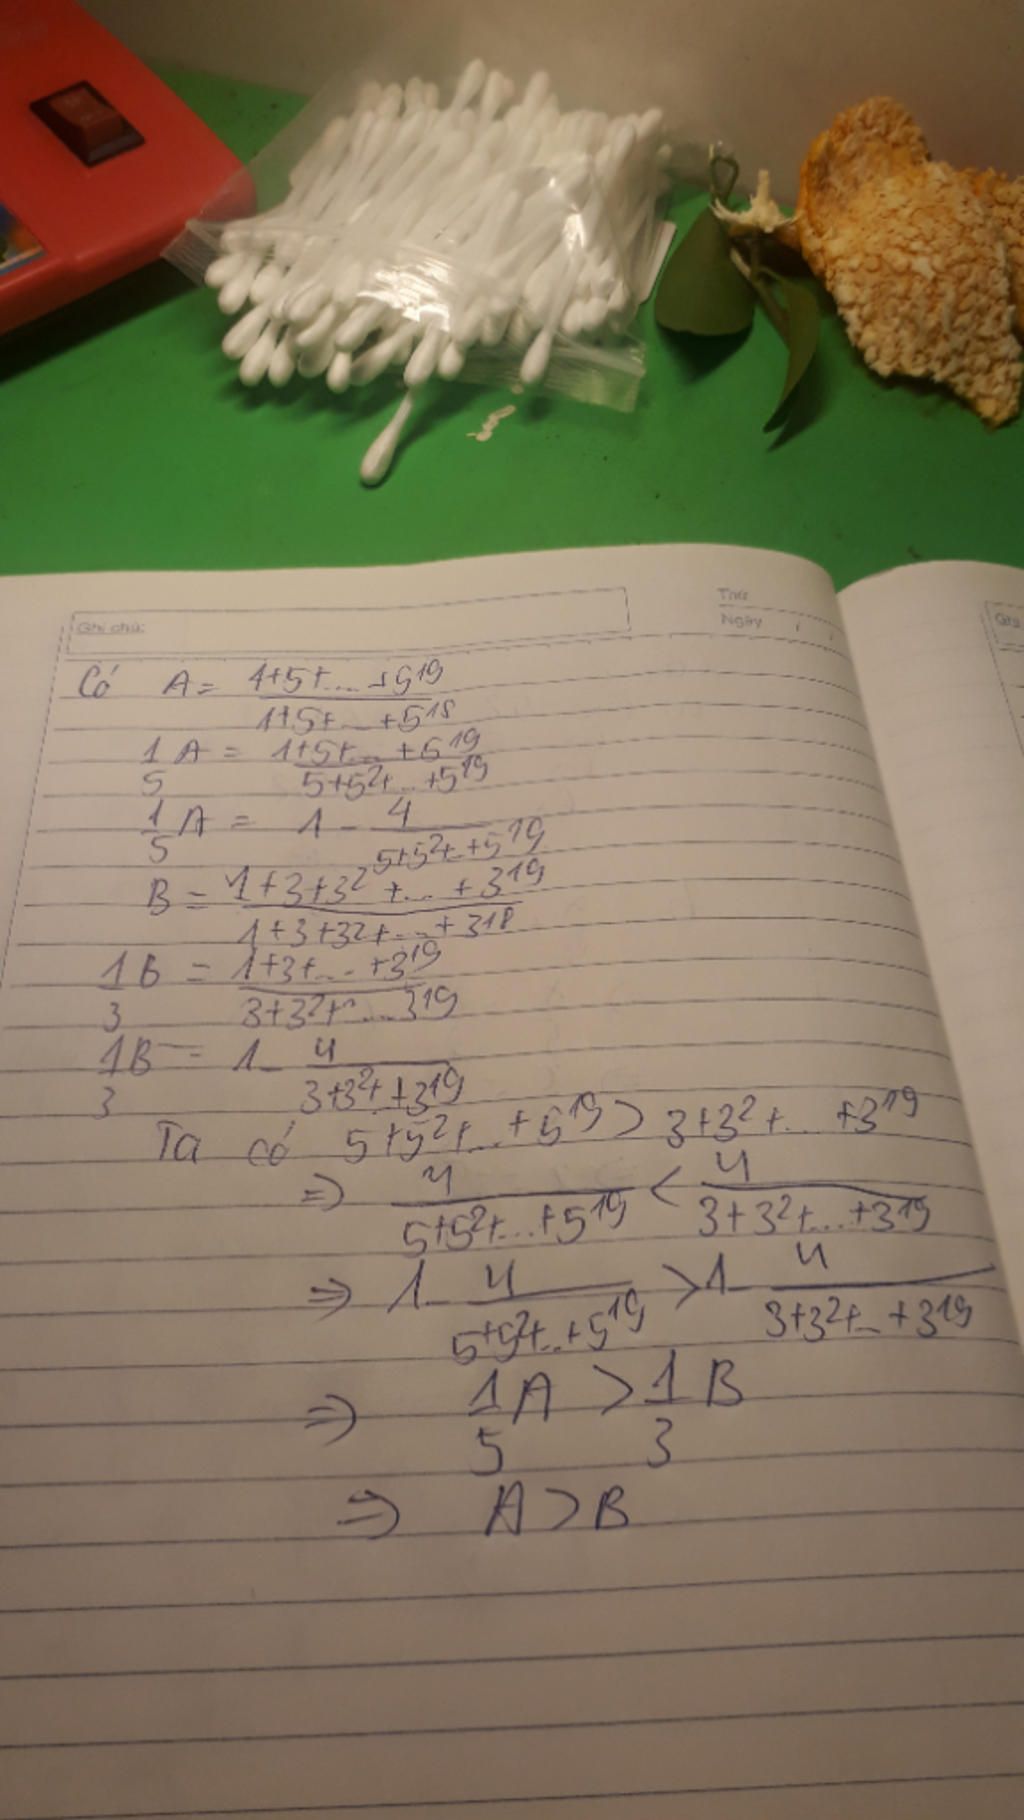 Ghi chú:
Thứ
Ngày / /
Ghi
Có A = 1+5+...+5^19 / 1+5+...+5^18
1/5 A = 1+5+...+5^19 / 5+5^2+...+5^19
1/5 A = 1 - 4 / 5+5^2+..+5^19
B = 1+3+3^2+...+3^19 / 1+3+3^2+...+3^18
1/3 B = 1+3+...+3^19 / 3+3^2+...3^19
1/3 B = 1 - 4 / 3+3^2+ +3^19
Ta có 5+5^2+...+5^19 > 3+3^2+...+3^19
=> 4 / 5+5^2+...+5^19 < 4 / 3+3^2+...+3^19
=> 1 - 4 / 5+5^2+..+5^19 > 1 - 4 / 3+3^2+..+3^19
=> 1/5 A > 1/3 B
=> A > B